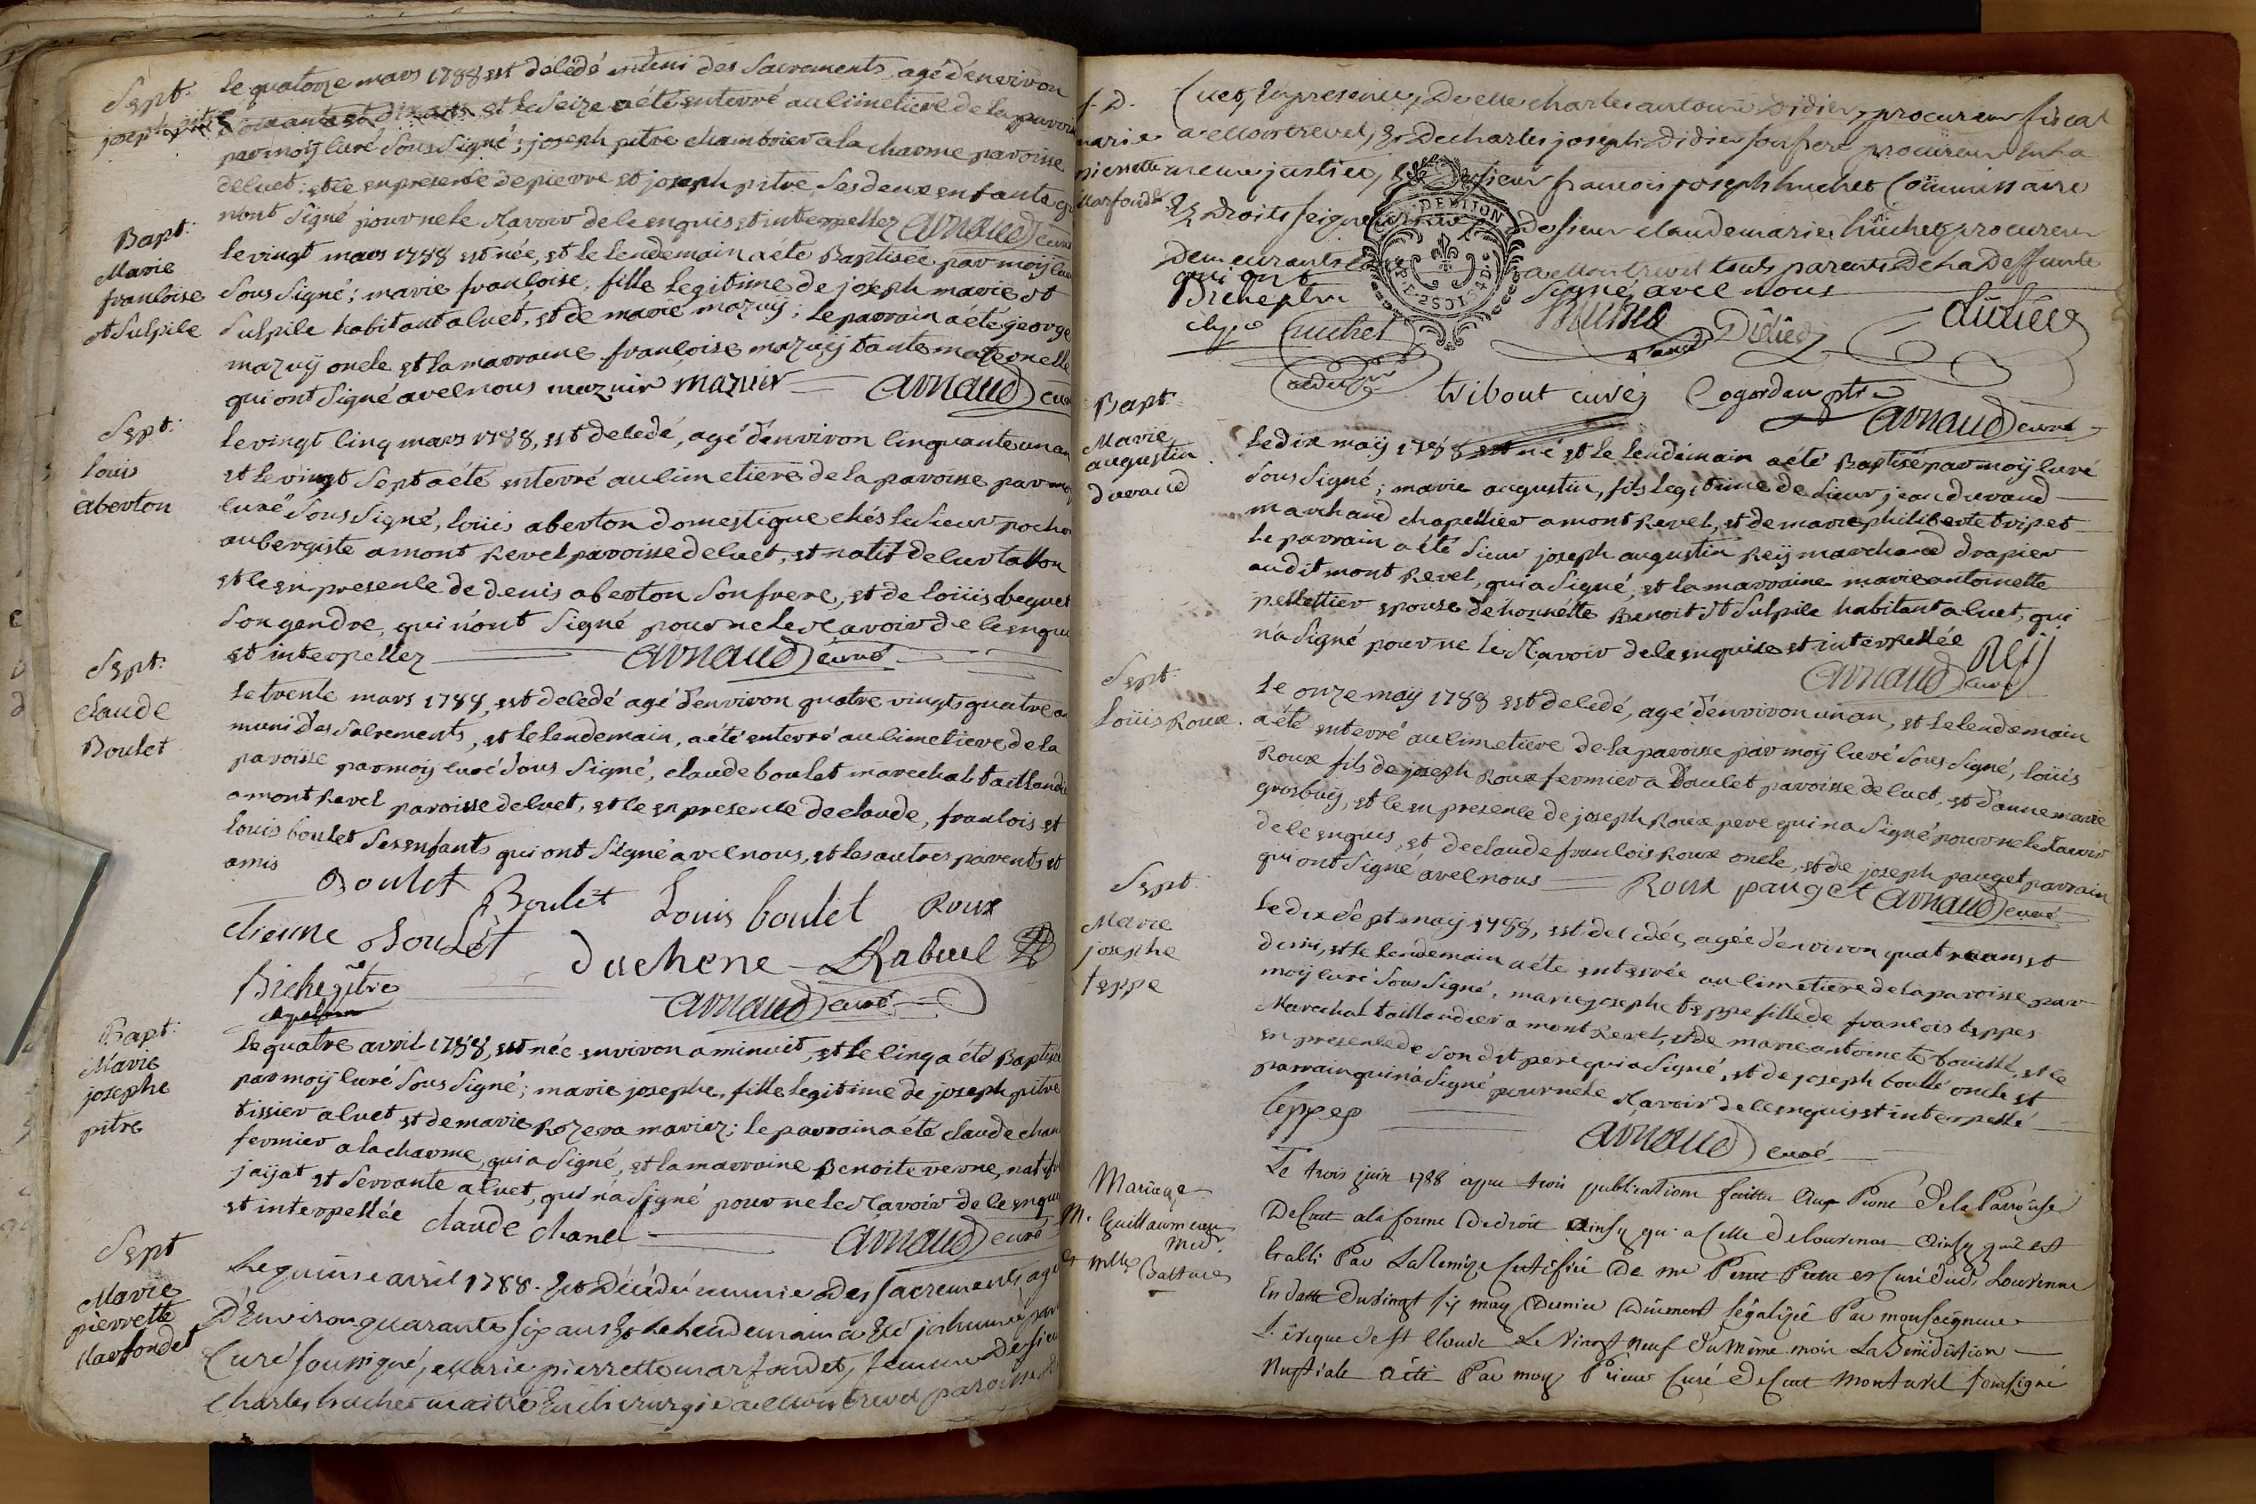 Sept.
joseph pitre
le quatorze mars 1788 est décédé muni des Sacrements, agé d'environ
soixante et dix ans et le seize a été enterré au cimetiere de la paroisse
par moÿ curé Sous Signé; joseph pitre chambrier a la charme paroisse
de cuet; et ce en présence de pierre et joseph pitre Ses deux enfants qui
n'ont Signé pour ne le Sçavoir de ce enquis et interpellez Arnaud curé
Bapt:
Marie
françoise
St Sulpice
le vingt mars 1788 est née, et le lendemain a été Baptisée par moÿ curé
Sous Signé; marie françoise, fille legitime de joseph marie St
Sulpice habitant a cuet, et de marie mazuÿ; le parrain a été george
mazuÿ oncle et la marraine françoise mazuÿ tante maternelle
qui ont Signé avec nous mazuir mazuir Arnaud curé
Sept:
louis
aberton
le vingt cinq mars 1788, est décédé, agé d'environ cinquante un an
et le vingt Sept a été enterré au cimetiere de la paroisse par moÿ
curé Sous Signé, loüis aberton domestique chés le Sieur pochon
aubergiste a mont Revel paroisse de cuet, et natif de curtafon
et ce en presence de denis aberton Son frere, et de loüis beguet
Son gendre, qui n'ont Signé pour ne le Sçavoir de ce enquis
et interpellez Arnaud curé
Sept:
claude
Boulet
le trente mars 1788, est décédé agé d'environ quatre vingts quatre ans
muni des Sacrements, et le lendemain, a été enterré au cimetiere de la
paroisse par moÿ curé Sous Signé, claude boulet marechal taillandier
a mont Revel paroisse de cuet, et ce en presence de claude, francois et
louis boulet Ses enfants qui ont Signé avec nous, et les autres parents et
amis Boulet Boulet Louis boulet Roux
etienne Boulet duchene Rabuel
Bichegitre Arnaud curé
Bapt:
Marie
josephe
pitre
le quatre avril 1788, est née environ a minuit, et le cinq a été Baptisée
par moÿ curé Sous Signé; marie josephe, fille legitime de joseph pitre
tissier a cuet et de marie Rozera mariez; le parrain a été claude chanel
fermier a la charme, qui a Signé, et la marraine Benoite verne, native
jaÿat et Servante a cuet, qui n'a Signé pour ne le Sçavoir de ce enquise
et interpellée claude chanel Arnaud curé
Sept
Marie
pierrette
Marfondet
Le quinze avril 1788. Est Décédée munie Des Sacrements, agée
D'Environ quarante six ans Et le Lendemain a Eté inhumée par
Curé soussigné, Marie pierrette marfondet, femme De sieur
Charles huchet maitre En chirurgie a Montrevel paroisse de
S. D.
marie
pierrette
Marfondet
Cuet, En presence, De Me charles antoine Didier, procureur fiscal
a Montrevel, Et De charles joseph Didier son frere procureur En la
meme justice, Et De sieur francois joseph huchet Commissaire
Es Droits seigneuriaux Et De sieur claude marie huchet procureur
Demeurants a Montrevel touts parents De la Deffunte
qui ont Signé avec nous
G. DE DIJON
Bichegitre
huchet huchet Didier Didier
tribout curé Cogordan ptre
Arnaud curé
Bapt
Marie
augustin
durand
le dix maÿ 1788 est né et le lendemain a été Baptisé par moÿ curé
Sous Signé; marie augustin, fils legitime de Sieur jean durand
marchand chapellier a mont Revel, et de marie philiberte tripet
le parrain a été Sieur joseph augustin Reÿ marchand drapier
audit mont Revel, qui a Signé, et la marraine marie antoinette
pellettier epouse de honnette Benoit St Sulpice habitant a cuet, qui
n'a Signé pour ne le Sçavoir de ce enquise et interpellée Reÿ
Arnaud curé
Sept:
Loüis Roux.
le onze maÿ 1788 est décédé, agé d'environ un an, et le lendemain
a été enterré au cimetiere de la paroisse par moÿ curé Sous Signé, loüis
Roux fils de joseph Roux fermier a Doulet paroisse de cuet, et d'anne marie
grosbuÿ, et ce en presence de joseph Roux pere qui n'a Signé pour ne le Sçavoir
de ce enquis, et de claude francois Roux oncle, et de joseph pauget parrain
qui ont Signé avec nous Roux pauget Arnaud curé
Sept:
Marie
josephe
teppe
le dix Sept maÿ 1788, est décédée, agée d'environ quatre ans et
demi, et le lendemain a été enterrée au cimetiere de la paroisse par
moÿ curé Sous Signé, marie josephe teppe fille de francois teppes
Marechal taillandier a mont Revel, et de marie antoinette bouillé, et ce
en presence de Son dit pere qui a Signé, et de joseph bouillé oncle et
parrain qui n'a Signé pour ne le Sçavoir de ce enquis et interpellé
teppes Arnaud curé
Mariage
M. Guillaumeau
Med.
et mlle
Le trois juin 1788 apres trois publications faittes Aux Prone De la Parroisse
De Cuet a la forme De droit Ainsy qu'a celle de Louvenne Ainsy qu'il est
Etabli Par La Remise Certifiée De mr Curé dud. Louvenne
En datte Du vingt six may Dernier Düement légalizée Par monseigneur
L'evique de St Claude Le Vingt neuf Du Même mois La Bénédiction
Nuptiale a été Par moy Prieur Curé De Cuet Montrevel soussigné